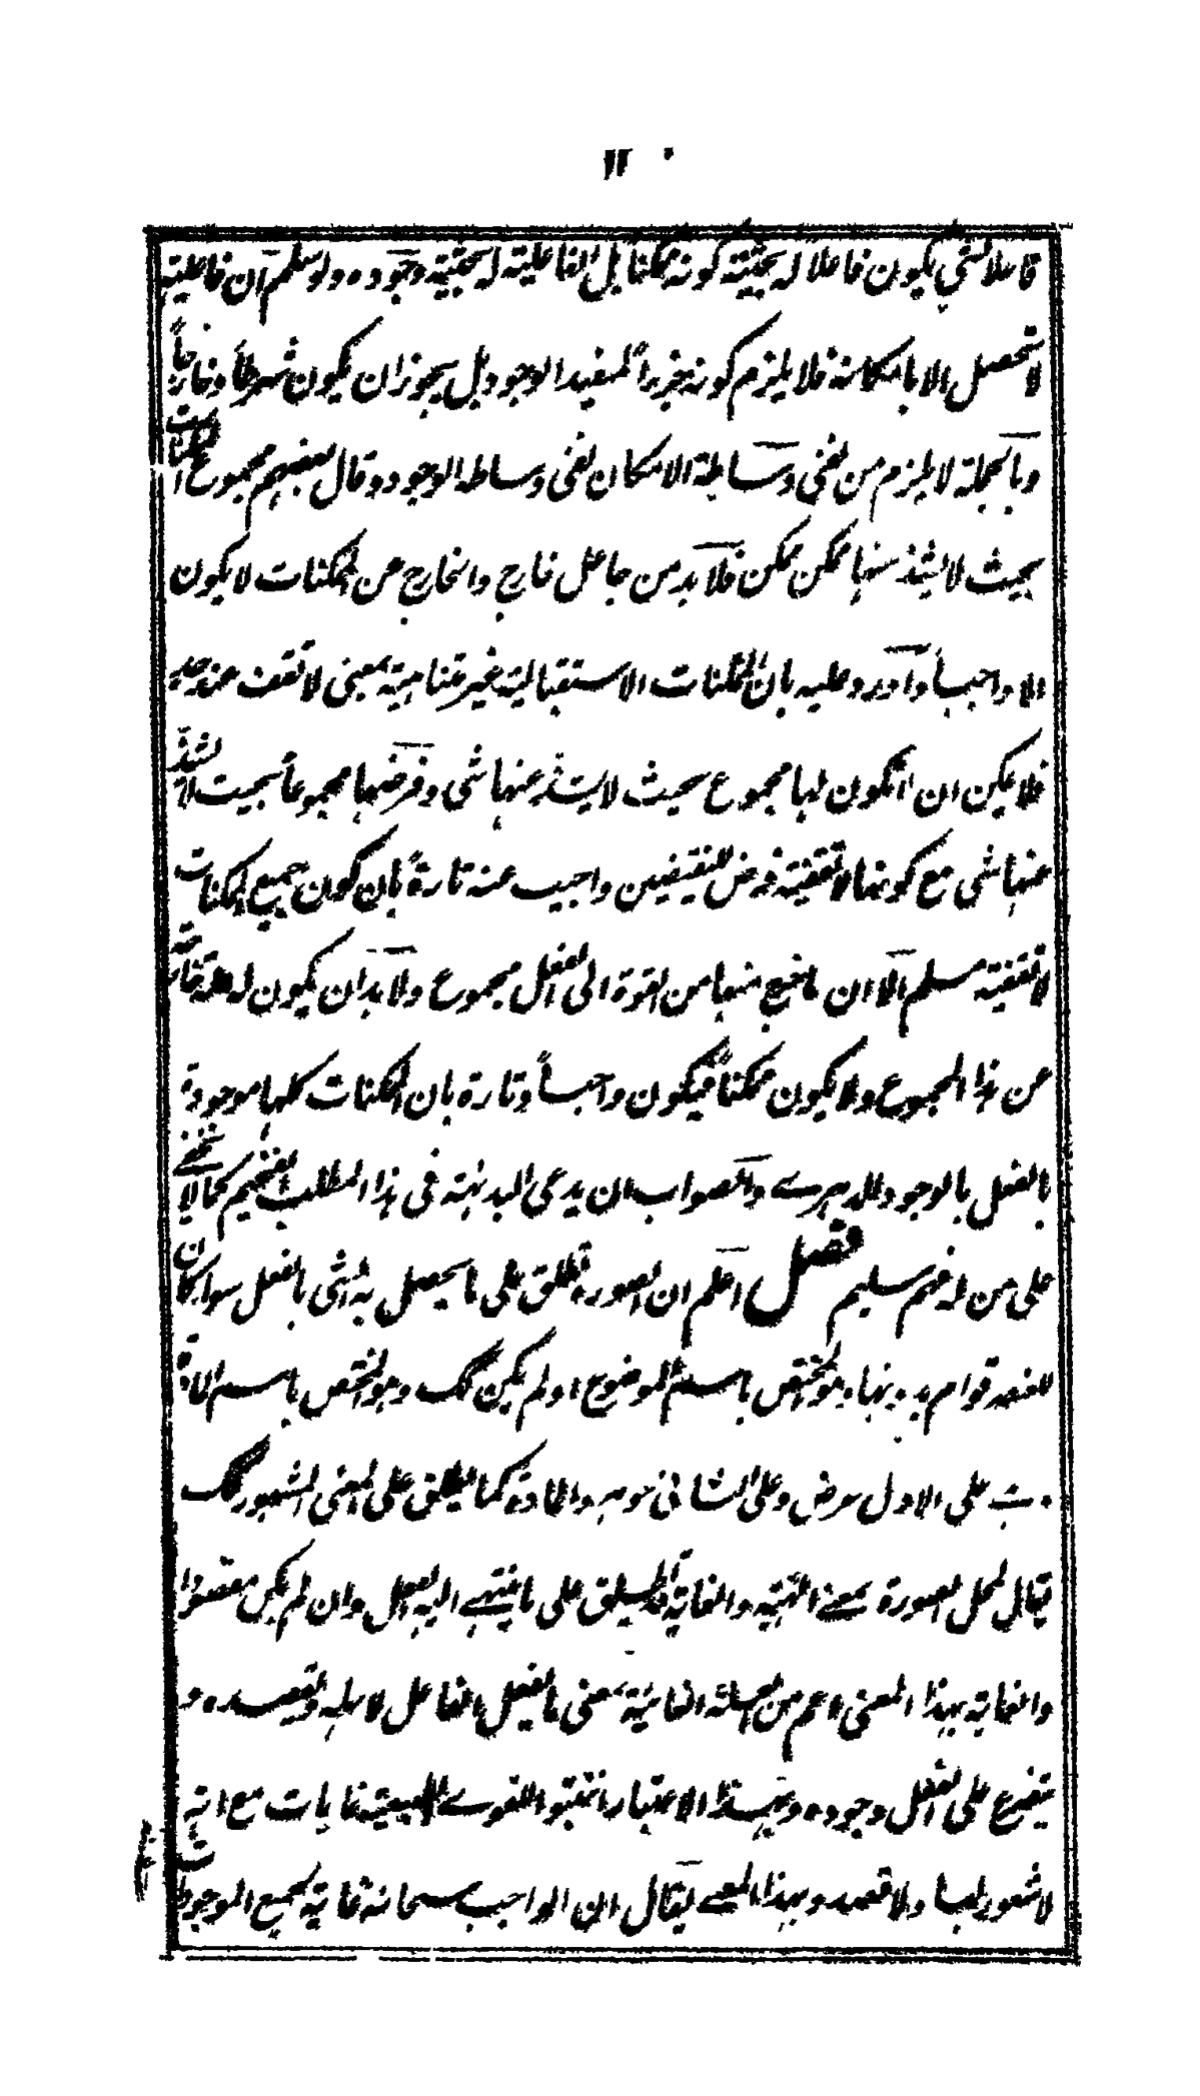 ۱۲۰
فاعلا لشئ يكون فاعلا له بحيثية كونه ممكنا بل الفاعلية له بحيثية وجوده ولو سلم ان فاعليته
لا تحصل الا بامكانه فلا يلزم كونه جزءاً لمفيد الوجود بل يجوز ان يكون شرطاً وخارجاً
وبالجملة لا يلزم من نفي وساطة الامكان نفي وساطة الوجود وقال بعضهم مجموع الممكنات
بحيث لا يشذ منها ممكن ممكن فلا بد من جاعل خارج والخارج عن الممكنات لا يكون
الا واجباً واورد عليه بان الممكنات الاستقبالية غير متناهية بمعنى لا تقف عند حد
فلا يمكن ان يكون لها مجموع بحيث لا يشذ عنها شئ وفرضها مجموعاً بحيث لا يشذ
عنها شئ مع كونها لا تقفية فرض للنقيضين واجيب عنه تارةً بان كون جميع الممكنات
لا تقفية مسلم الا ان ما خرج منها من القوة الى الفعل مجموع ولا بد ان يكون له علة خارجة
عن هذا المجموع ولا يكون ممكناً فيكون واجباً وتارة بان الممكنات كلها موجودة
بالفعل بالوجود الدهرے والصواب ان يدعى البديهة في هذا المطلب الفخيم كما لا يخفى
على من له فهم سليم فصل اعلم ان الصورة تطلق على ما يحصل به الشئ بالفعل سواء كان
للعنصر قوام بدونها وهو المختص باسم الموضوع او لم يكن كك وهو المختص باسم المادة
فهے على الاول عرض وعلى الثاني جوهر والمادة كما تطلق على المعنى المشهور كك
يقال لمحل الصورة بمعنے الهيئة والغاية قد يطلق على ما ينتهے اليه الفعل وان لم يكن مقصودا
والغاية بهذا المعنى اعم من العلة الغائية بمعنى ما يفعل الفاعل لاجله ويقصده و
يتفرع على الفعل وجوده وبهذا الاعتبار اثبتوا للقوے الطبيعية غايات مع انه
لا شعور لها ولا قصد وبهذا المعنے يقال ان الواجب سبحانه غاية لجميع الموجودات